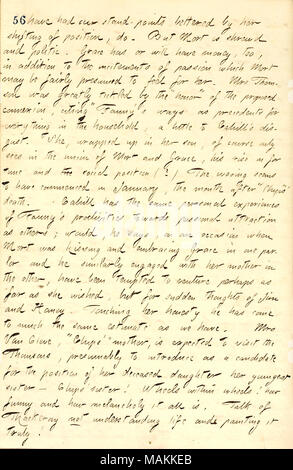 56 have had our stand-points bettered by her
shifting of position, do. But Mort is shrewd
and politic. Grace has or will have money, too,
in addition to the incitements of passion which Mort
may be fairly presumed to feel for her. Mrs Thom-
son was greatly tickled by the "honor" of the proposed
connexion, citing "Fanny's ways" as precedents for
everything in the household, a little to Cahill's dis-
gust. She, wrapped up in her son, of course only
sees in the union of Mort and Grace, his rise in for-
tune and social position (!) The wooing seems
to have commenced in January, the month after "Chips'"
death. Cahill had the same personal experiences
of Fanny's proclivities towards personal attraction
as others; would, he says, on an occasion when
Mort was kissing and embracing Grace in one par-
lor and he similarly engaged with her mother in
the other, have been tempted to venture perhaps as
far as she wished, but for sudden thoughts of Jim
and Haney. Touching her honesty he has come
to much the same estimate as we have. Mrs
Van Cleve, "Chips'" mother, is expected to visit the
Thomsons, presumably to introduce as a candidate
for the position of her deceased daughter her younger
sister — Chips' sister. Wheels within wheels! How
funny and how melancholy it all is. Talk of
Thackeray not understanding life and painting it
truly!
alamy
MAKKEB